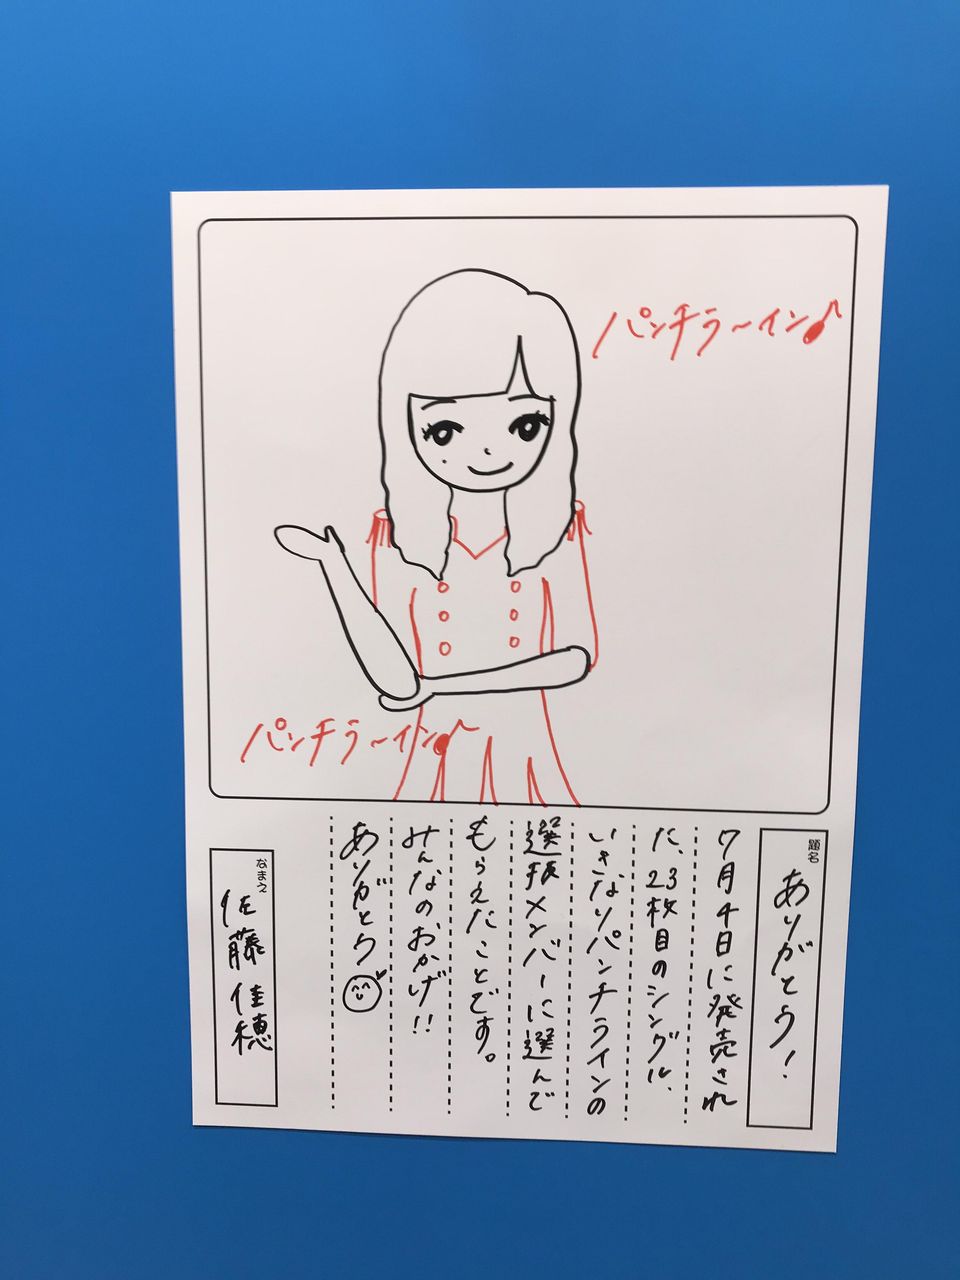 パンチラ～イン♪
パンチラ～イン♪
題名
ありがとう!
7月4日に発売され
た、23枚目のシングル、
いきなりパンチラインの
選抜メンバーに選んで
もらえたことです。
みんなのおかげ!!
ありがとう
なまえ
佐藤佳穂